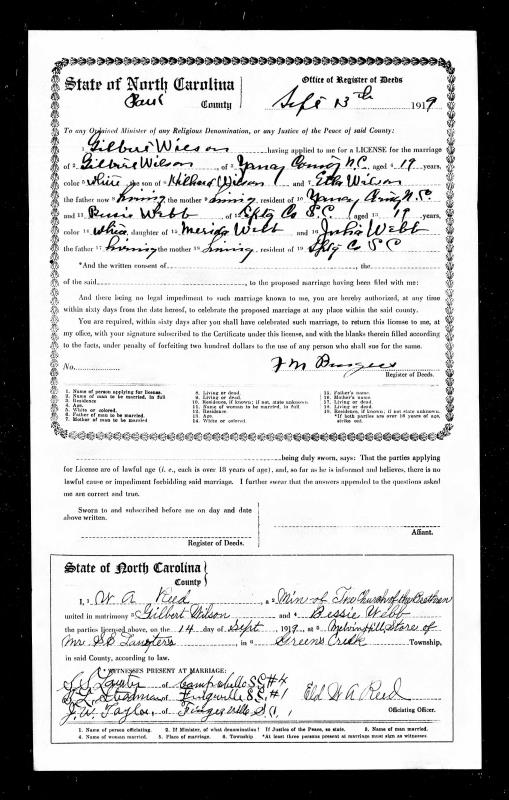 State of North Carolina
County
Office of Register of Deeds
Sept 13th 1919
To any Ordained Minister of any Religious Denomination, or any Justice of the Peace of said County:
1 Gilbert Wilson having applied to me for a LICENSE for the marriage
of 2 Gilbert Wilson of 3 Yancy County N.C. aged 4 19 years,
color 5 white the son of 6 Wilson and 7 Wilson
the father now 8 living the mother 9 living, resident of 10 Yancy County N.C.
and 11 Bessie Webb of 12 Sptg Co S.C. (aged 13 19 years,
color 14 white, daughter of 15 Webb and 16 Julia Webb
the father 17 living the mother 18 living, resident of 19 Sptg Co S C
*And the written consent of , the
of the said , to the proposed marriage having been filed with me:
And there being no legal impediment to such marriage known to me, you are hereby authorized, at any time
within sixty days from the date hereof, to celebrate the proposed marriage at any place within the said county.
You are required, within sixty days after you shall have celebrated such marriage, to return this license to me, at
my office, with your signature subscribed to the Certificate under this license, and with the blanks therein filled according
to the facts, under penalty of forfeiting two hundred dollars to the use of any person who shall sue for the same.
No. F M Burgess
Register of Deeds.
1. Name of person applying for license.
2. Name of man to be married, in full
3. Residence
4. Age.
5. White or colored.
6. Father of man to be married.
7. Mother of man to be married
8. Living or dead.
9. Living or dead.
10. Residence, if known; if not, state unknown.
11. Name of woman to be married, in full
12. Residence.
13. Age.
14. White or colored.
15. Father's name.
16. Mother's name.
17. Living or dead.
18. Living or dead.
19. Residence, if known; if not state unknown.
*If both parties are over 18 years of age, strike out.
being duly sworn, says: That the parties applying
for License are of lawful age (i. e., each is over 18 years of age), and, so far as he is informed and believes, there is no
lawful cause or impediment forbidding said marriage. I further swear that the answers appended to the questions asked
me are correct and true.
Sworn to and subscribed before me on day and date
above written.
Register of Deeds.
Affiant.
State of North Carolina
County
I, 1 W A Reed, a 2 Min of The Church of the Brethren
united in matrimony 3 Gilbert Wilson and 4 Bessie Webb
the parties licensed above, on the 14 day of Sept 1919, at 5 Melvin Hill, Store of
Mr. in 6 Greens Creek Township,
in said County, according to law.
*WITNESSES PRESENT AT MARRIAGE:
of Campobello SC #4
of Fingerville SC. #1
J. W. Taylor, of Fingerville S.C. 1
Eld W A Reed
Officiating Officer.
1. Name of person officiating. 2. If Minister, of what denomination? If Justice of the Peace, so state. 3. Name of man married.
4. Name of woman married. 5. Place of marriage. 6. Township *At least three persons present at marriage must sign as witness.